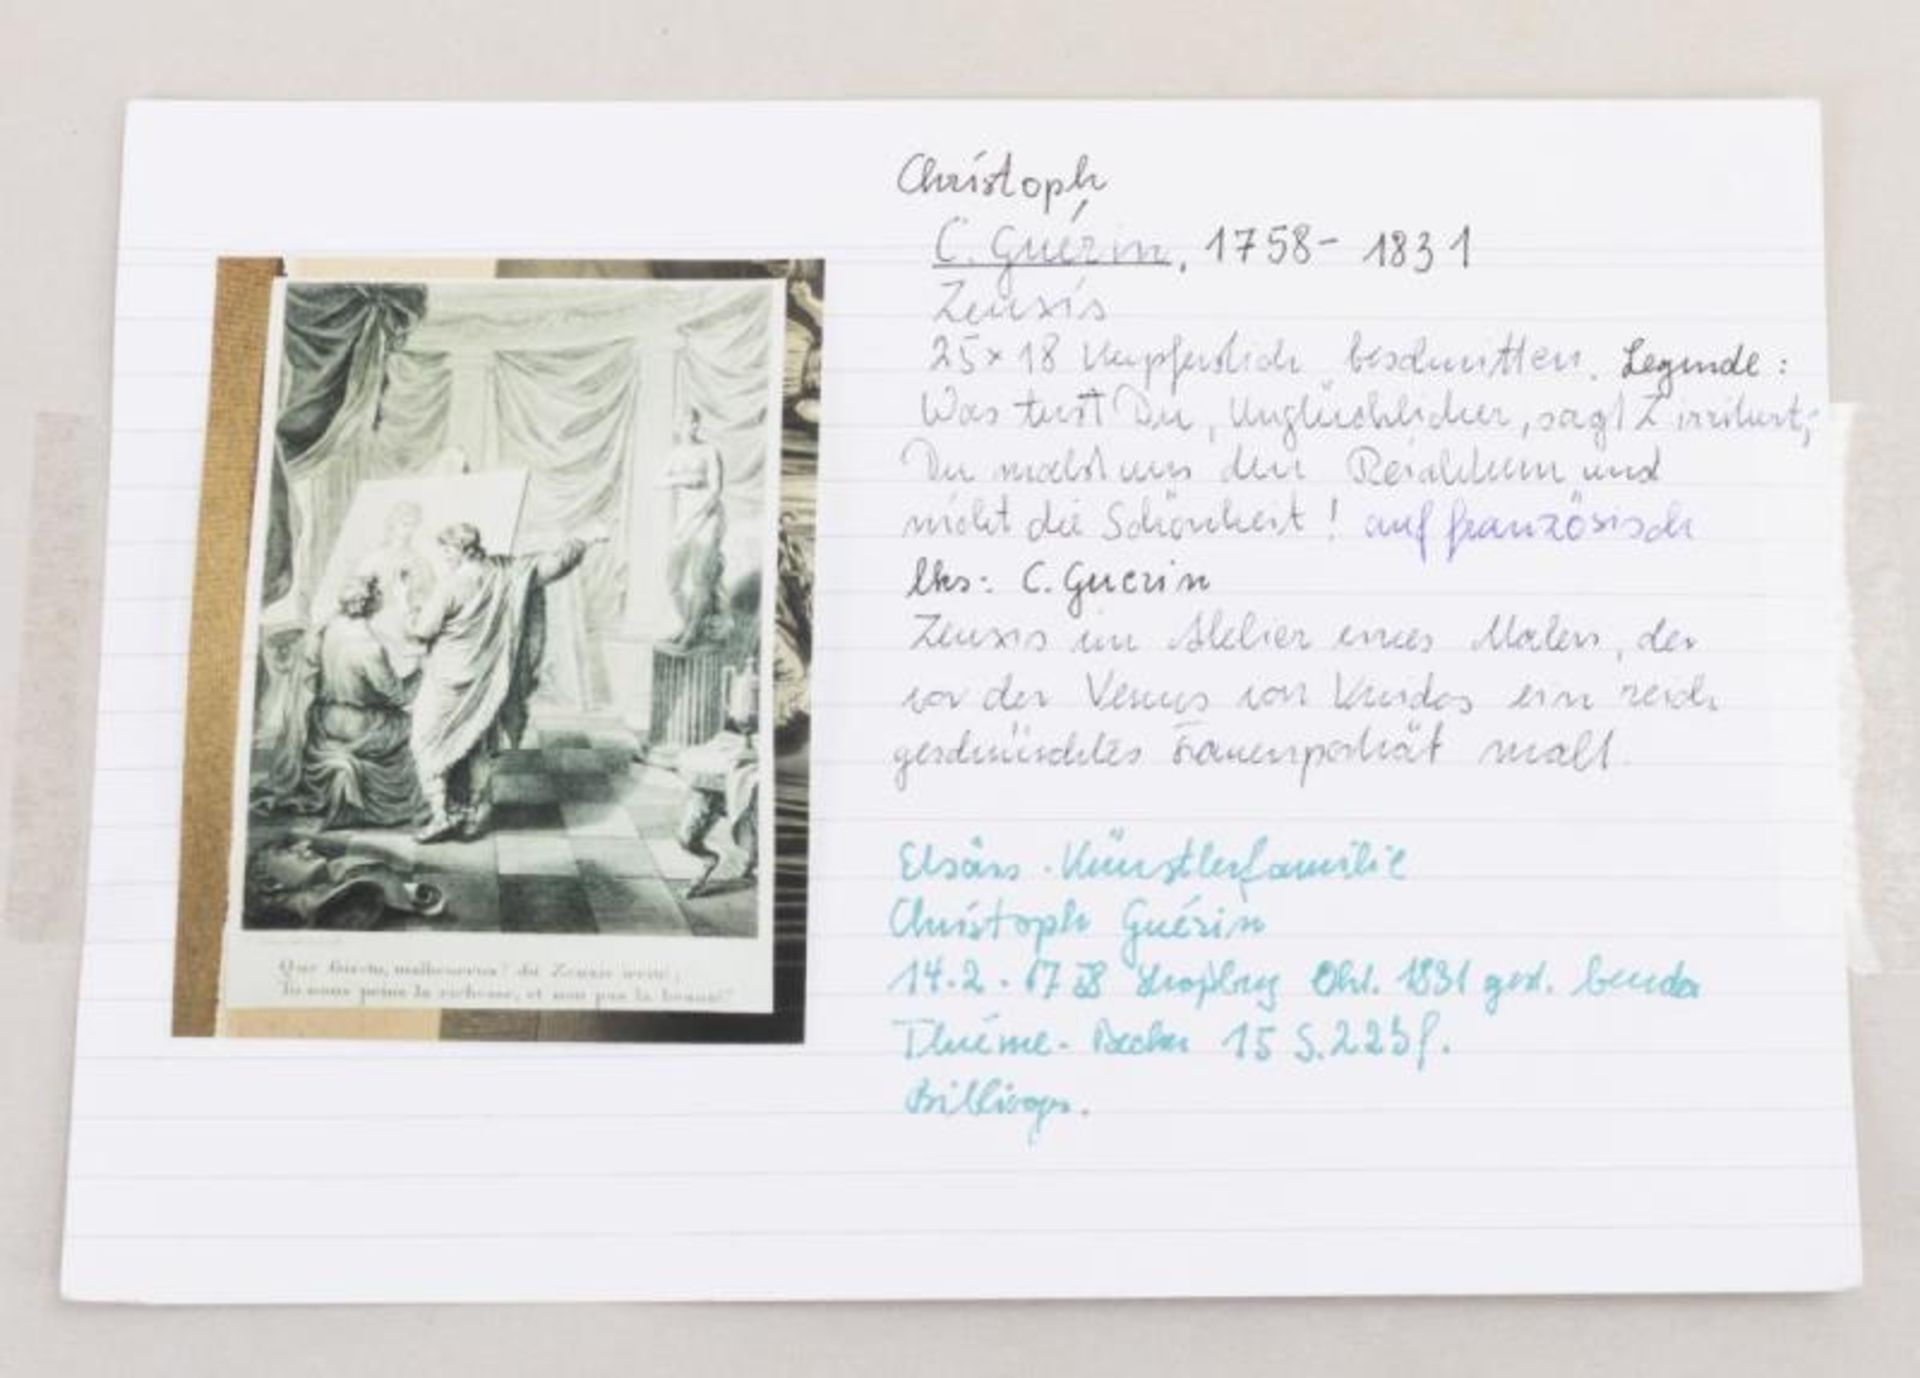 Christoph
C. Guérin, 1758 - 1831
Zeuxis
25 x 18 Kupferstich beschnitten. Legende:
Was tust Du, Unglücklicher, sagt Z irritiert,
Du malst uns den Reichtum und
nicht die Schönheit! auf französisch
lks: C. Guerin
Zeuxis im Atelier eines Malers, der
vor der Venus von Knidos ein reich
geschmücktes Frauenporträt malt.
Elsäss. Künstlerfamilie
Christoph Guérin
14.2.1758 Straßburg Okt. 1831 gest. beuda
Thieme-Becker 15 S.225f.
Que fais-tu, malheureux? dit Zeuxis irrité;
Tu nous peins la richesse, et non pas la beauté!